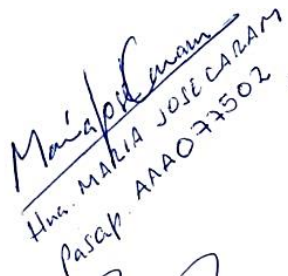 María José Caram
Hna. MARIA JOSE CARAM
Pasap. AAA077502